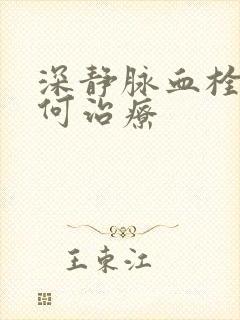 深静脉血栓
何治疗
王东江